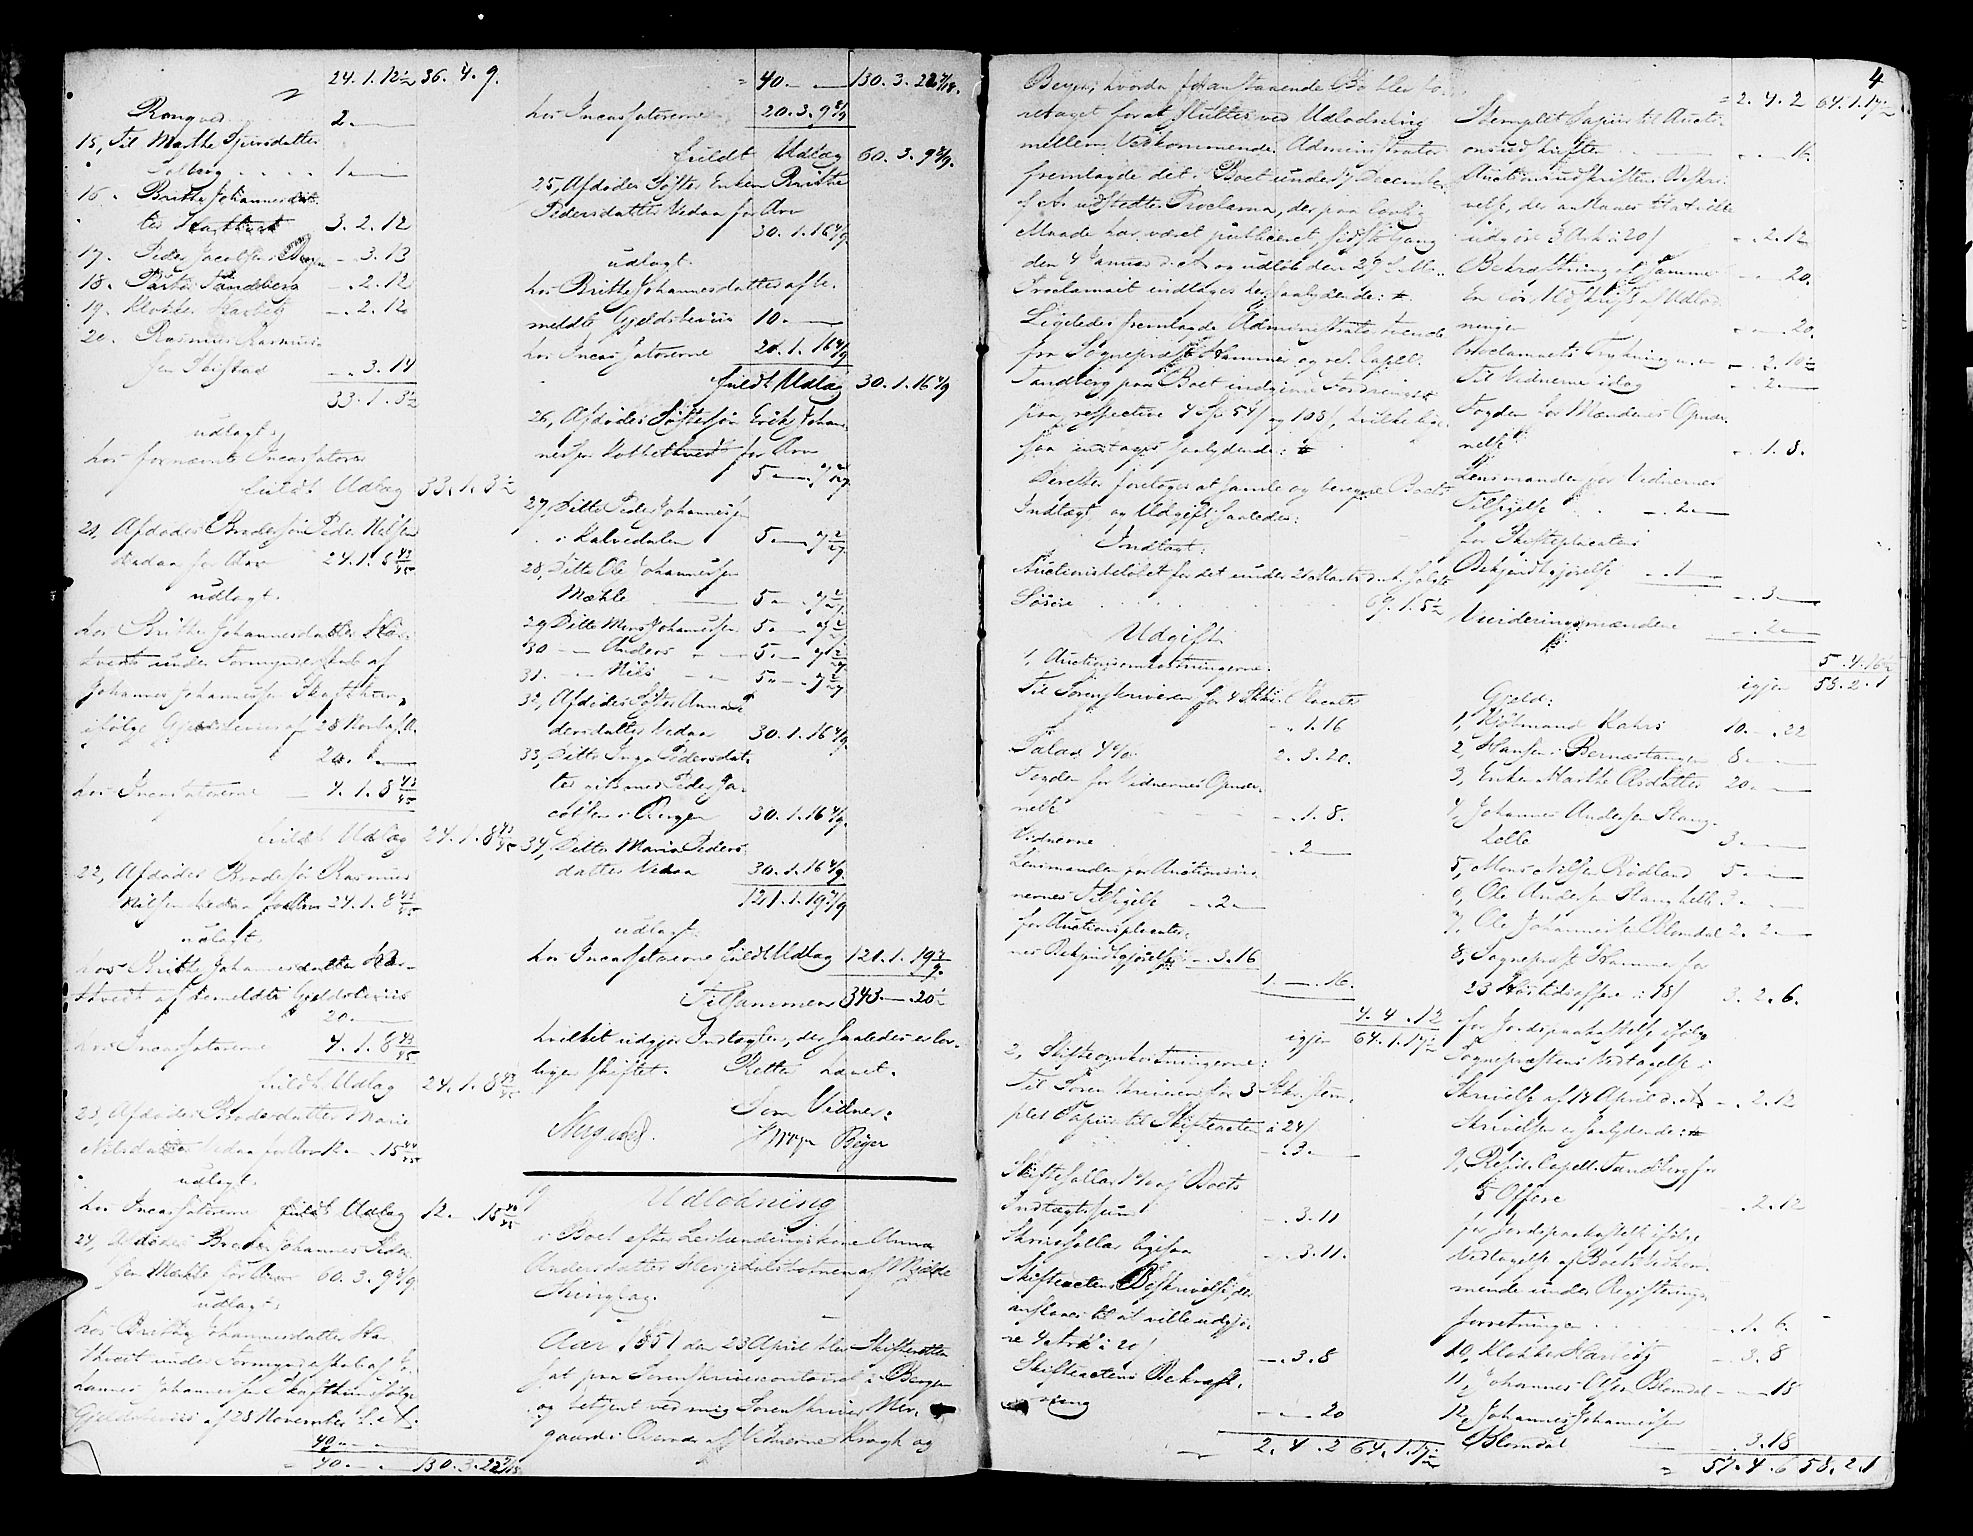 24.1.12½ 36.4.9.
Rongved 2.—
15, Til Marthe
Solberg . . . . 1.—
16. Brithe Johannesdat-
ter 3.2.12
17. Peder Jacobsen -.3.13
18. Præsten Sandberg -.2.12
19. Klokker Harbitz -.2.12
20. Rasmus Rasmus-
sen -.3.14
33.1.3½
udlagt.
hos fornævnte Incassatorer
fuldt Udlæg 33.1.3½
21, Afdødes Brodersøn Peder Nilsen
Vedaa for Arv 24.1.8 43/45
udlagt.
hos Brithe Johannesdatter Har-
tveit under Formynderskab af
Johannes Johannessen
ifølge Gjeldsbevis af 28 Novbr f. A.
20.—
hos Incassatorerne 4.1.8 43/45
fuldt Udlæg 24.1.8 43/45
22, Afdødes Brodersøn Rasmus
Nilsen Vedaa for Arv 24.1.8 43/45
udlagt.
hos Brithe Johannesdatter Har-
tveit af bemeldte Gjeldsbeviis
20.—
hos Incassatorerne 4.1.8 43/45
fuldt Udlæg 24.1.8 43/45
23, Afdødes Broderdatter Marie
Nilsdatter Vedaa for Arv 12.—.15 44/45
udlagt.
hos Incassatorerne fuldt Udlæg 12.—.15 44/45
24, Afdødes Broder Johannes Peder-
sen Mæhle for Arv 60.3.9 8/9.
udlagt.
hos Brithe Johannesdatter Har-
tveit under Formynderskab af Jo-
hannes Johannessen ifølge
Gjeldsbeviis af 28 November f. A.
40.—.—
= 40.—.— 130.3.22
= 40.—.— 130.3.22
hos Incassatorerne 20.3.9 8/9
fuldt Udlæg 60.3.9 8/9.
25, Afdødes Søster Enken Brithe
Pedersdatter Vedaa for Arv
30.1.16 4/9
udlagt.
hos Brithe Johannesdatter af be-
meldte Gjeldsbeviis 10.—
hos Incassatorerne 20.1.16 4/9
fuldt Udlæg 30.1.16 4/9
26, Afdødes Søstersøn Erik Johan-
nessen for Arv
5.—
27, Ditto Peder Johannessen
i Kalvedalen 5.—
28, Ditto Ole Johannessen
Mæhle 5.—
29 Ditto Mons Johannessen 5.—
30 — Anders 5.—
31. — Nils 5.—
32, Afdødes Søster Anna Pe-
dersdatter Vedaa 30.1.16 4/9
33, Ditto Inga Pedersdat-
ter gift med Peder Ja-
cobsen i Bergen 30.1.16 4/9.
34, Ditto Maria Peders-
datter Vedaa 30.1.16 4/9.
121.1.19 7/9
udlagt.
hos Incassatorerne fuldt Udlæg 121.1.19 7/9.
Tilsammen 343.—.20½
hvilket udgjør Indtægten, der saaledes er lov-
ligen skiftet. Retten hævet.
Som Vidner:
Beyer
Udlodning
i Boet efter Leilændingskone Anna
Andersdatter Herjedalsbotnen af Mjelde
Thinglag.
Aar 1851 den 23 April blev Skifteretten
sat paa Sorenskrivercontoiret i Bergen
og betjent ved mig Sorenskriver Ner-
gaard i Overvær af Vidnerne Kragh og
4
Beyer, hvorda foranstaaende Bo blev fo-
retaget for at sluttes ved Udlodning
mellem Vedkommende. Administrator
fremlagde det i Boet under 7 December
f. A. udstedte Proclama, der paa lovlig
Maade har været publiceret sidste Gang
den 4 Januar d. A. og udløb den 29
Proclamaet indtages her saalydende:
Ligeledes fremlagde Administrator tvende
fra Sognepræst Hammer og res. Capell.
Sandberg paa Boet indgivne Fordringer
paa respective 4 Spd 54 s og 108 s, hvilke lige-
saa indtages saalydende:
Derefter foretoges at samle og beregne Boets
Indtægt og Udgift saaledes:
Indtægt:
Auctionsbeløbet for det under 21 Marts d. A. solgte
Løsøre . . . . 69.1.5½
Udgift
1, Auctionsomkostningerne:
Til Sorenskriveren for 4 Placater
-.1.16
Salair 4% 2.3.20.
Fogden for Vidnernes Opnæv-
nelse -.1.8.
Vidnerne -.2.—
Lensmanden for Auctionsvid-
nernes Tilsigelse -.2.—
for Auctionsplacater-
nes Bekjendtgjørelse -.3.16
1.—.16.
4.4.12
igjen 64.1.17½
2, Skifteomkostningerne:
Til Sorenskriveren for 3 Ark stem-
plet Papiir til Skifteacten à 24 s
-.3.—
Skiftesallar 1% af Boets
Indtægtssum -.3.11
Skriversallar ligesaa -.3.11.
Skifteactens Beskrivelse, der
ansees til at ville udgjø-
re 4 Ark à 20 s -.3.8
Skifteactens Bekræft-
ning -.—.20
2.4.2 64.1.17½
= 2.4.2 64.1.17½
Stemplet Papiir til Aucti-
onsudskriften -.—.16.
Auctionsudskriftens Beskri-
velse, der ansees at ville
udgjøre 3 Ark à 20 s -.2.12
Bekræftning af samme -.—.20.
En do. Udskrift af Udlod-
ningen -.—.20.
Proclamaets Trykning m. v. -.2.10½
Til Vidnerne idag -.2.—
Fogden for Mændenes Opnæv-
nelse -.1.8.
Lensmanden for Vidnernes
Tilsigelse -.2.—
for Skifteplacatens
Bekjendtgjørelse -.1.—
-.3.—
Vurderingsmændene -.2.—
5.4.16½
igjen 58.2.1
Gjeld:
1, Kjøbmand Kahrs 10.—.22
2, Hansen i Bernæstangen 8.—
3, Enken Marthe Olsdatter 20.—
4, Johannes Andersen Stang-
helle 3.—
5, Mons Nilsen Rødland 5.—
6, Ole Andersen Stanghelle 3.—
7, Ole Johannessen Blomdal 2.2.—
8, Sognepræst Hammer for
23 Høitidsoffere à 18 s 3.2.6.
for Jordspaakastelse ifølge
Sognepræstens Vedtagelse i
Skrivelse af 14 April d. A. -.2.12
Skrivelsen er saalydende:
9, Resid. Capell. Sandberg for
5 Offere -.2.12
for Jordspaakastelse ifølge
Vedtagelse af Boets Vedkom-
mende under Registrerings-
forretningen -.1.6.
10, Klokker Harbitz -.3.8
11, Johannes Olsen Blomdal -.—.18
12, Johannes Johannessen
Blomdal -.3.18
= 57.4.6 58.2.1